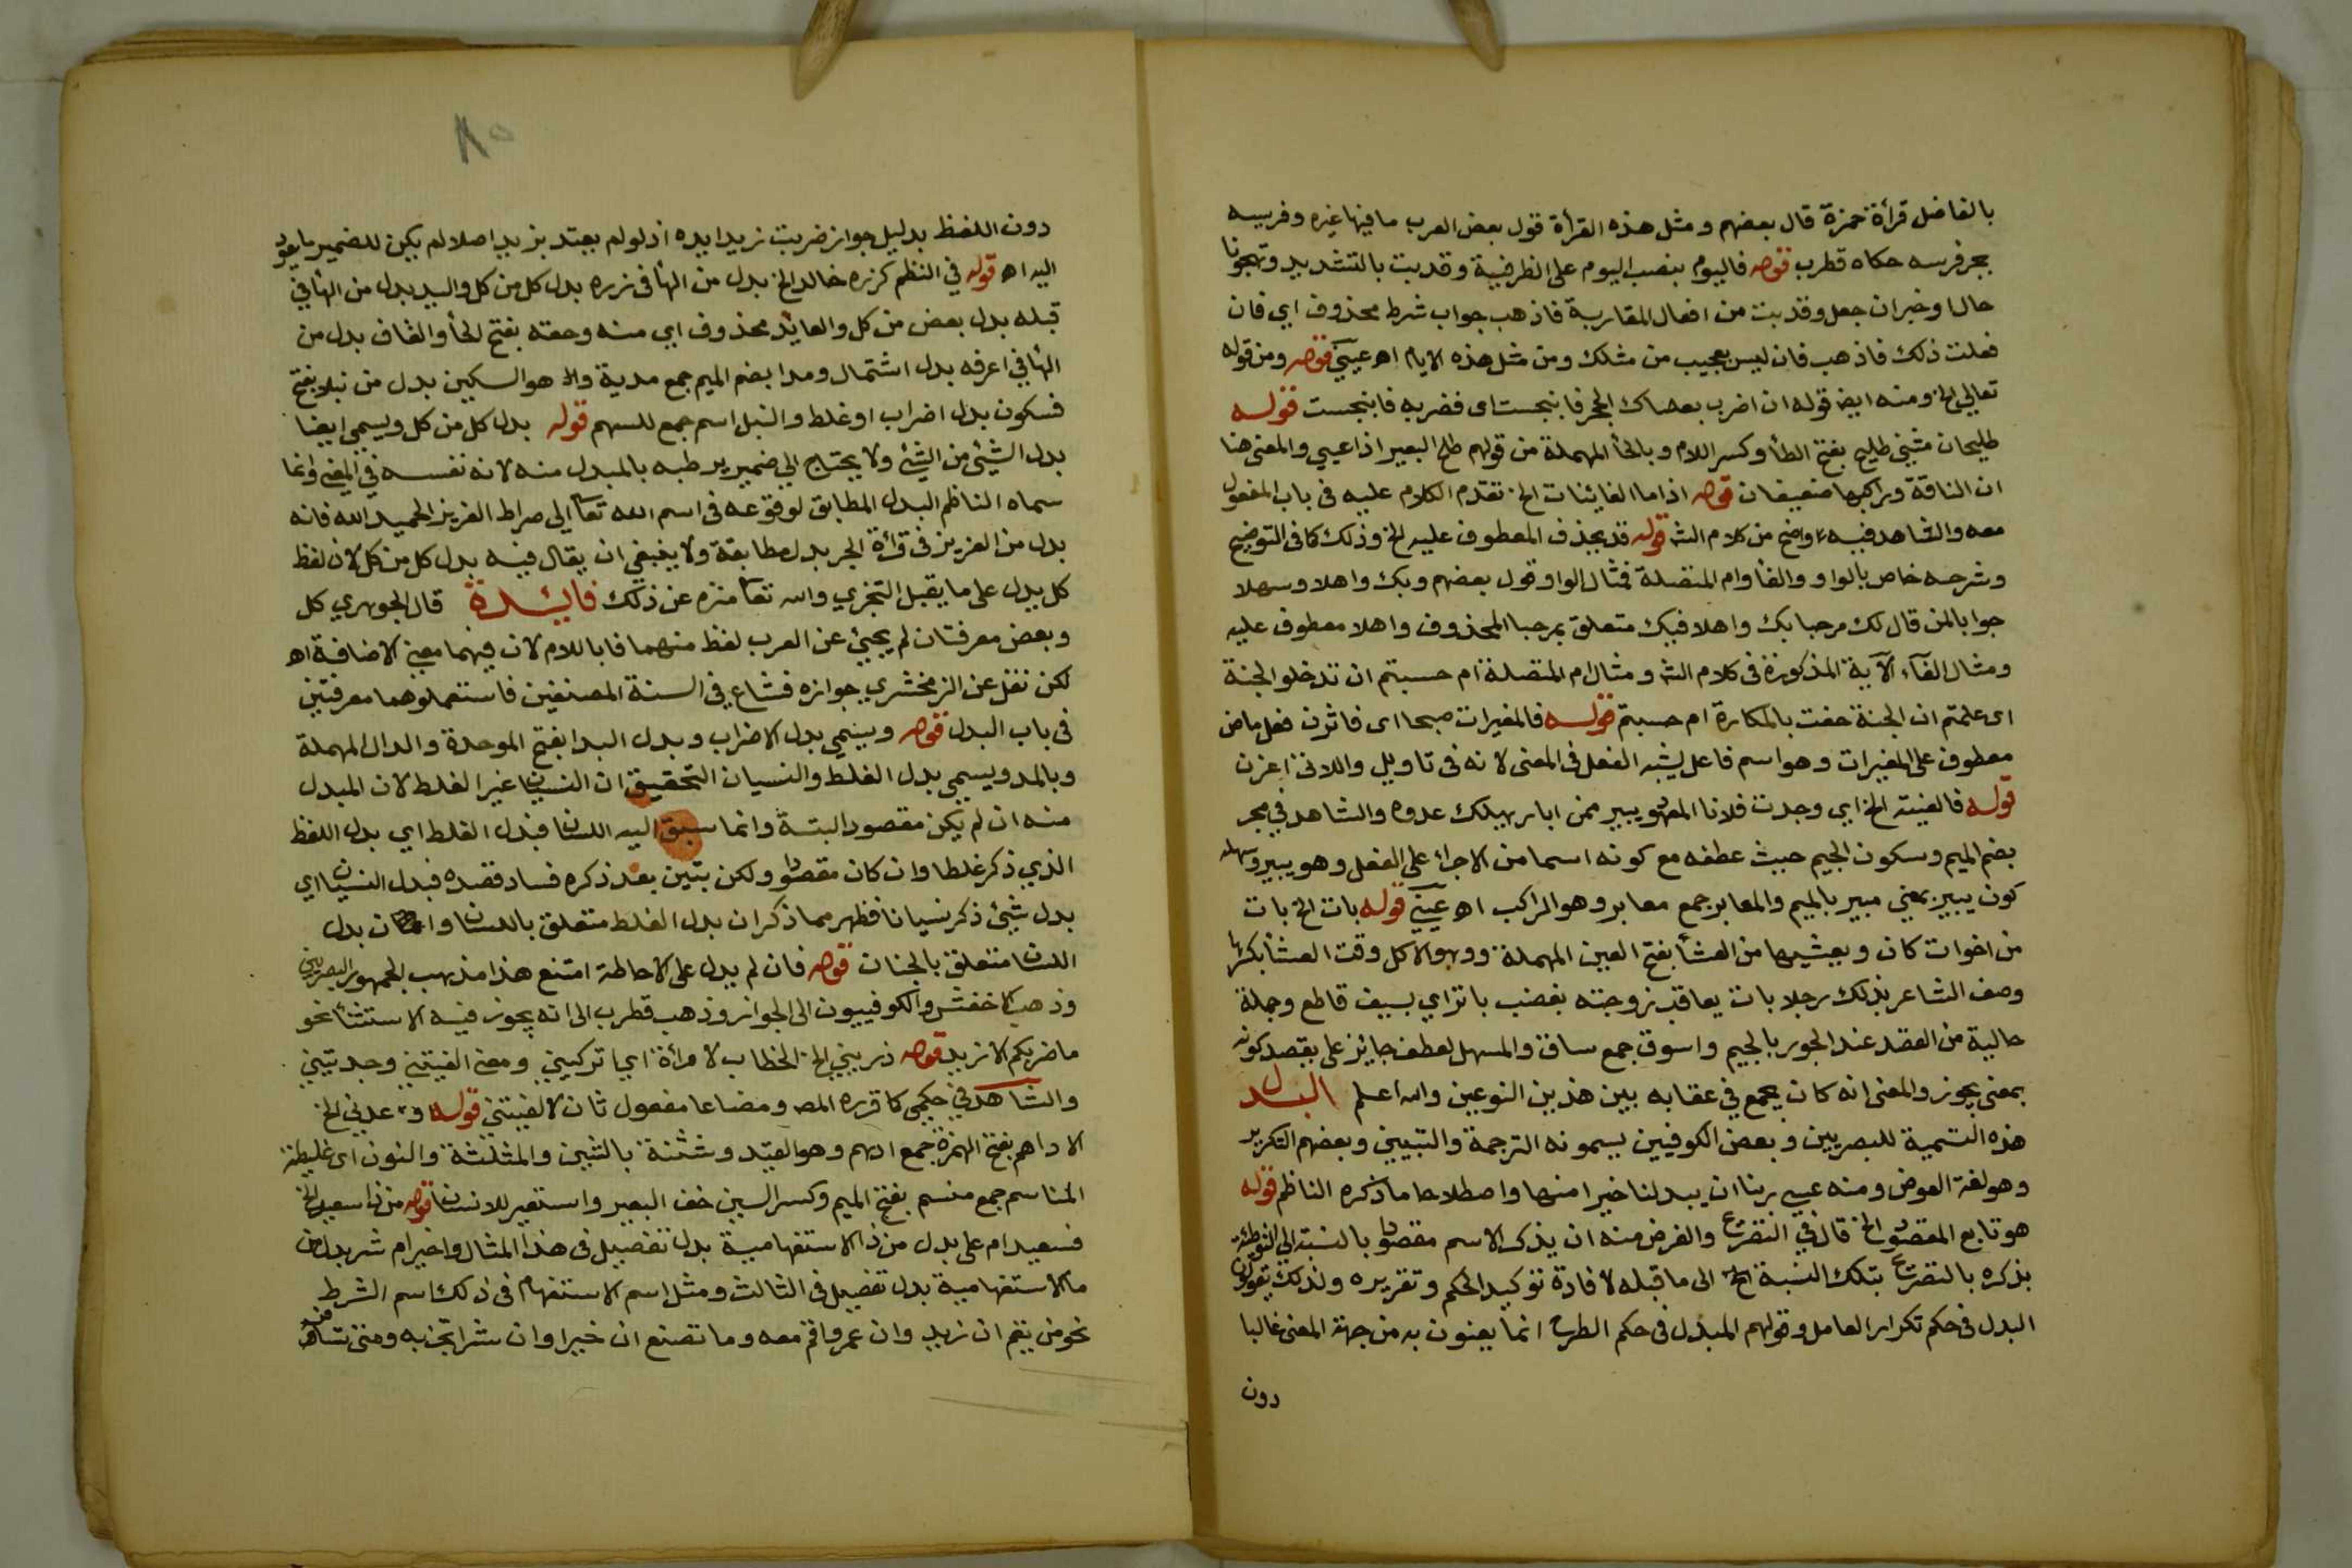 بالفاضل قرأة حمزة قال بعضهم ومثل هذه القرأة قول بعض العرب ما فيها غيره وفرسه
بجر فرسه حكاه قطرب قوله فاليوم بنصب اليوم على الظرفية وقد بت بالتشديد وتهجونا
حال او خبر ان جعل وقد بت من افعال المقاربة فاذهب جواب شرط محذوف اي فان
فعلت ذلك فاذهب فان ليس بعجيب من مثلك ومن مثل هذه الايام اهـ عيني قوله ومن قوله
تعالى الخ ومنه ايضا قوله ان اضرب بعصاك الحجر فانبجست اى فضربه فانبجست قوله
طليحان مثنى طليح بفتح الطأ وكسر اللام وبالحأ المهملة من قولهم طلح البعير اذا عيي والمعنى هنا
ان الناقة وراكبها ضعيفان قوله اذا ما الغانيات الخ تقدم الكلام عليه فى باب المفعول
معه والشاهد فيه واضح من كلام الش قوله قد يحذف المعطوف عليه الخ وذلك كما فى التوضيح
وشرحه خاص بالواو والفأ وام المتصلة فمثال الواو قول بعضهم وبك واهلا وسهلا
جوابا لمن قال لك مرحبا بك واهلا فبك متعلق بمرحبا المحذوف واهلا معطوف عليه
ومثال الفآء الآية المذكورة فى كلام الش ومثال ام المتصلة ام حسبتم ان تدخلو الجنة
اى علمتم ان الجنة حفت بالمكارة ام حسبتم قوله فالمغيرات صبحا اى فاثرن فعل ماض
معطوف على المغيرات وهو اسم فاعل يشبه الفعل فى المعنى لانه فى تاويل واللاتى اغرن
قوله فالفيته الخ اي وجدت فلانا المعهود يبير ممن ابار يهلك عدوه والشاهد في مجر
بضم الميم وسكون الجيم حيث عطفه مع كونه اسما من الاجرا على الفعل وهو يبير وسهله
كون يبير بمعني مبير بالميم والمعابر جمع معابر وهو المراكب اهـ عيني قوله بات الخ بات
من اخوات كان ويعشيها من العشأ بفتح العين المهملة وهو الاكل وقت العشأ بكسرها
وصف الشاعر بذلك رجلا بات يعاقب زوجته بغضب باتراي بسيف قاطع وجملة
حالية من القصد عند الجور بالجيم واسوق جمع ساق والمسهل لعطف جايز على يقصد كونه
بمعنى يجوز والمعنى انه كان يجمع في عقابه بين هذين النوعين والله اعلم البدل
هذه التسمية للبصريين وبعض الكوفيين يسمونه الترجمة والتبيين وبعضهم التكرير
وهو لغة العوض ومنه عسى ربنا ان يبدلنا خيرا منها واصطلاحا ما ذكره الناظم قوله
هو تابع المقصود الخ قال في التصريح والغرض منه ان يذكر الاسم مقصودا بالنسبة الى التوطئة
بذكره بالتصريح بتلك النسبة الخ الى ما قبله لافادة توكيد الحكم وتقريره ولذلك يقولون
البدل فى حكم تكرار العامل وقولهم المبدل فى حكم الطرح انما يعنون به من جهة المعنى غالبا
دون
٨٥
دون اللفظ بدليل جواز ضربت زيدا يده اذ لو لم يعتد بزيد اصلا لم يكن للضمير ما يعود
اليه اهـ قوله في النظم كزره خالدا الخ بدل من الهأ فى زره بدل كل من كل واليد بدل من الهأ في
قبله بدل بعض من كل والعايد محذوف اي منه وحقه بفتح الحأ والقاف بدل من
الهأ في اعرفه بدل اشتمال ومدا بضم الميم جمع مدية و هو السكين بدل من نبلا بفتح
فسكون بدل اضراب او غلط والنبل اسم جمع للسهم قوله بدل كل من كل ويسمى ايضا
بدل الشيئ من الشيئ ولا يحتاج الي ضمير يربطه بالمبدل منه لانه نفسه في المعنى وانما
سماه الناظم البدل المطابق لوقوعه فى اسم الله تعا الى صراط العزيز الحميد الله فانه
بدل من العزيز فى قرأة الجر بدل مطابقة ولا ينبغي ان يقال فيه بدل كل من كل لان لفظ
كل يدل على ما يقبل التجزي والله تعا منزه عن ذلك فايدة قال الجوهري كل
وبعض معرفتان لم يجيئ عن العرب لفظ منهما فا باللام لان فيهما معنى الاضافة اهـ
لكن نقل عن الزمخشري جوازه فشاع في السنة المصنفين فاستعملوهما معرفتين
فى باب البدل قوله وينتمي بدل الاضراب وبدل البدا بفتح الموحدة والدال المهملة
وبالمد ويسمى بدل الغلط والنسيان التحقيق ان النسيان غير الغلط لان المبدل
منه ان لم يكن مقصود البتة وانما سبق اليه اللسان فبدل الغلط اي بدل اللفظ
الذي ذكر غلطا وان كان مقصودا ولكن بتين بعد ذكره فساد قصده فبدل النسيان اي
بدل شيئ ذكر نسيانا فظهر مما ذكر ان بدل الغلط متعلق باللسان و بدل
اللسان متعلق بالجنان قوله فان لم يدل على الاحاطة امتنع هذا مذهب الجمهور البصريين
وذهب الاخفش والكوفييون الى الجواز وذهب قطرب الى انه يجوز فيه الاستثنأ نحو
ما ضربكم الا زيد قوله ذريني الخ الخطاب لامرأة اي اتركيني ومعنى الفيتني وجدتيني
والشاهد في حكمي كما قرره المص ومضاعا مفعول ثان لالفيتني قوله وعدني الخ
الاداهم بفتح الهمزة جمع ادهم وهو القيد وشثنة بالشين والمثلثة والنون اى غليظة
المناسم جمع منسم بفتح الميم وكسر السين خف البعير واستعير للانسان قوله من ذا سعيد الخ
فسعيد ام على بدل من ذا الاستفهامية بدل تفصيل فى هذا المثال واخير ام شر بدل من
ما الاستفهامية بدل تفصيل فى الثالث ومثل اسم الاستفهام فى ذلك اسم الشرط
نحو من يقم ان زيد وان عمرو اقم معه وما تصنع ان خيرا وان شرا تجز به ومتى تسافر